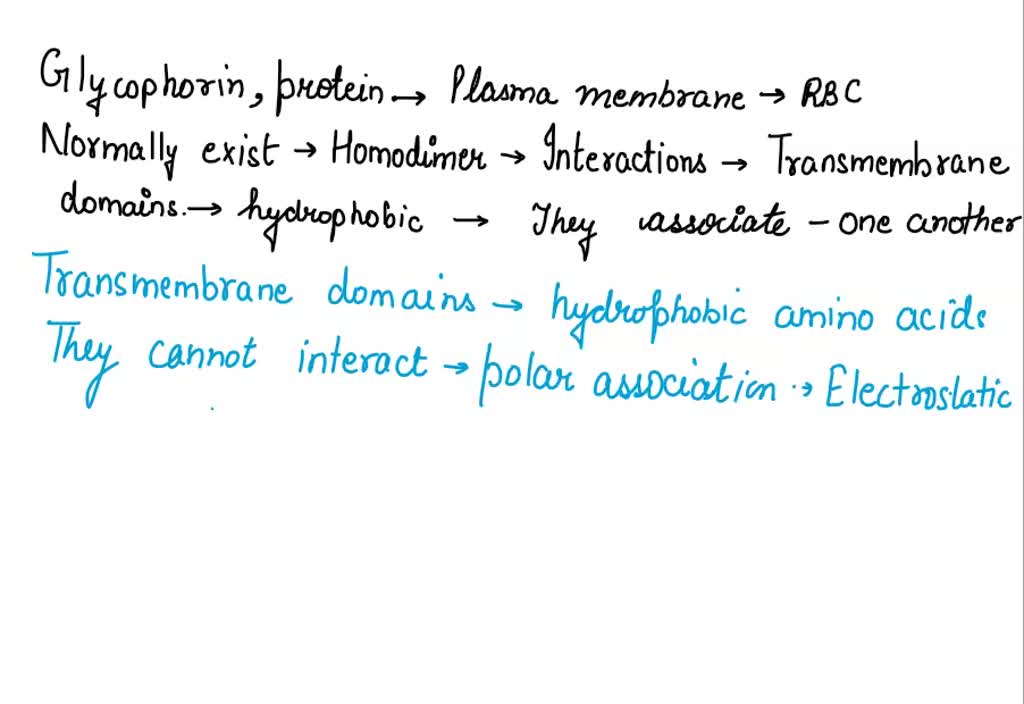 Glycophorin, protein → Plasma membrane → RBC
Normally exist → Homodimer → Interactions → Transmembrane
domains. → hydrophobic → They associate - one another
Transmembrane domains → hydrophobic amino acids
They cannot interact → polar association → Electrostatic